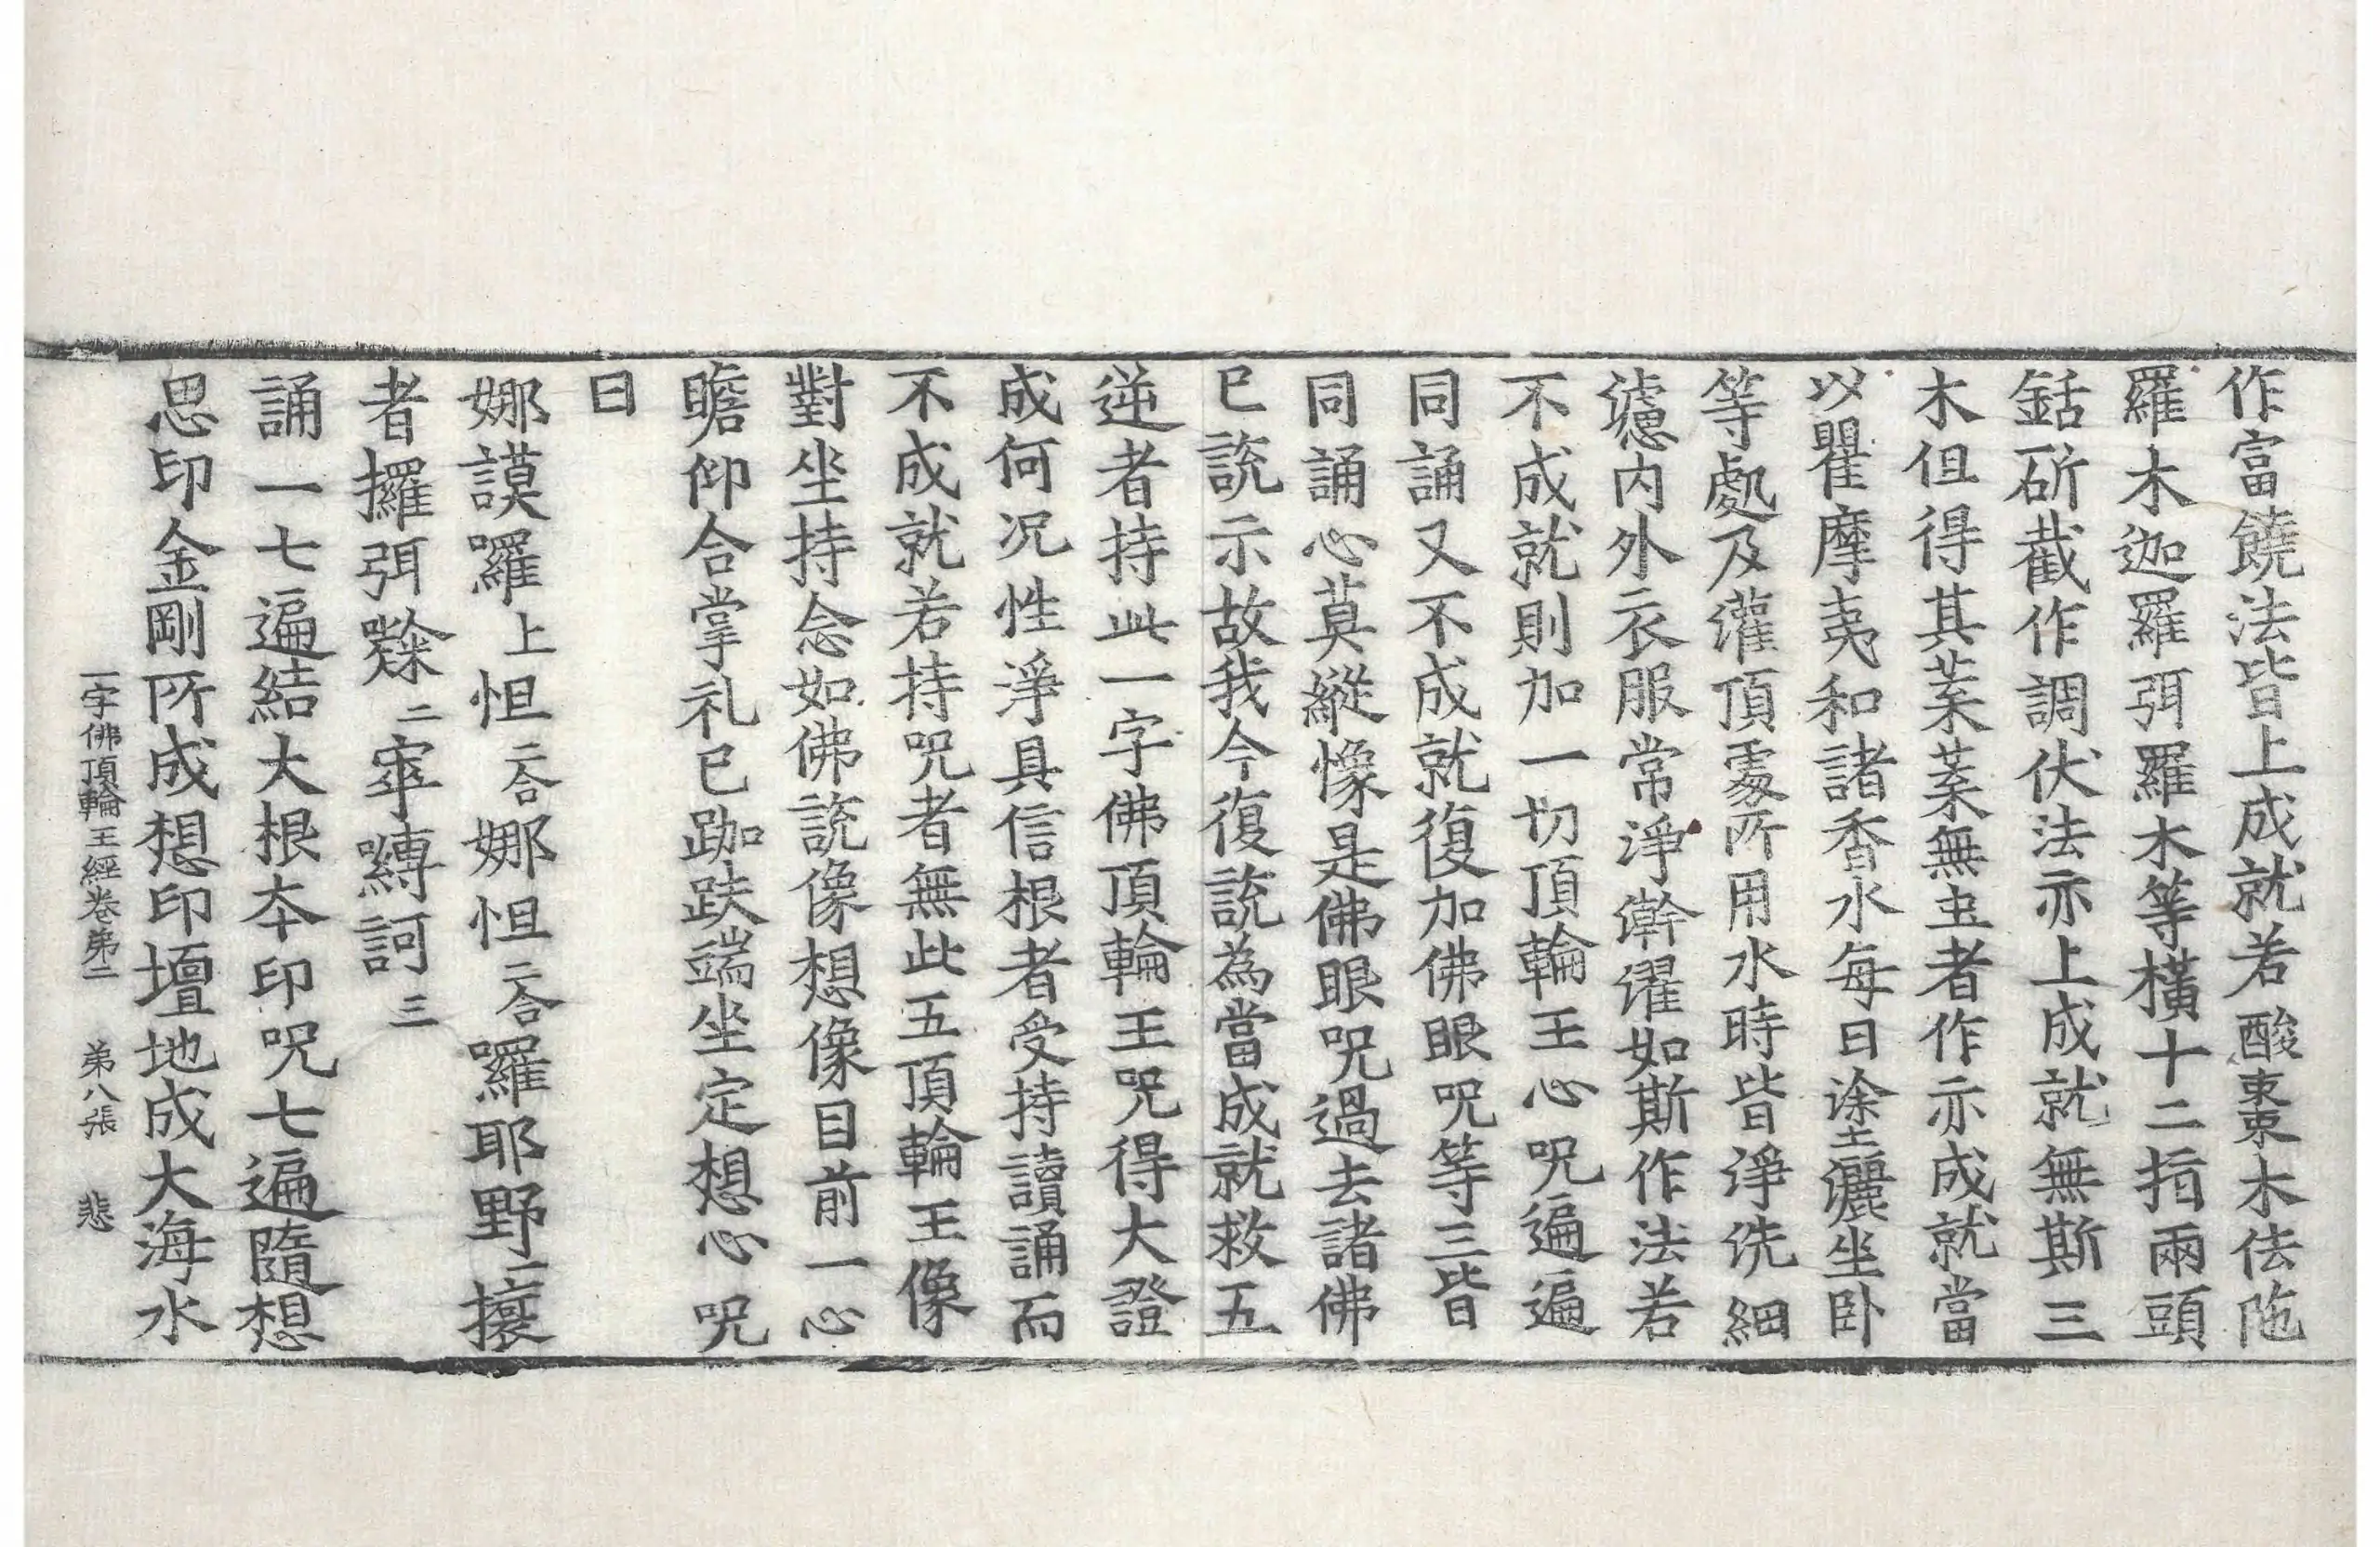 作富饒法皆上成就若酸棗木佉陁
羅木迦羅弭羅木等橫十二指兩頭
銛斫截作調伏法亦上成就無斯三
木但得其葉葉無虫者作亦成就當
以瞿摩夷和諸香水每日塗灑坐臥
等處及灌頂處所用水時皆淨洗細
濾內外衣服常淨澣濯如斯作法若
不成就則加一切頂輪王心呪遍遍
同誦又不成就復加佛眼呪等三皆
同誦心莫縱憿是佛眼呪過去諸佛
已說示故我今復說為當成就救五
逆者持此一字佛頂輪王呪得大證
成何況性淨具信根者受持讀誦而
不成就若持呪者無此五頂輪王像
對坐持念如佛說像想像目前一心
瞻仰合掌礼已跏趺端坐定想心呪
曰
娜謨囉上怛二合娜怛二合囉耶野一攘
者攞弭二寧縛訶三
誦一七遍結大根本印呪七遍隨想
思印金剛所成想印壇地成大海水
一字佛頂輪王經卷第二 第八張 悲